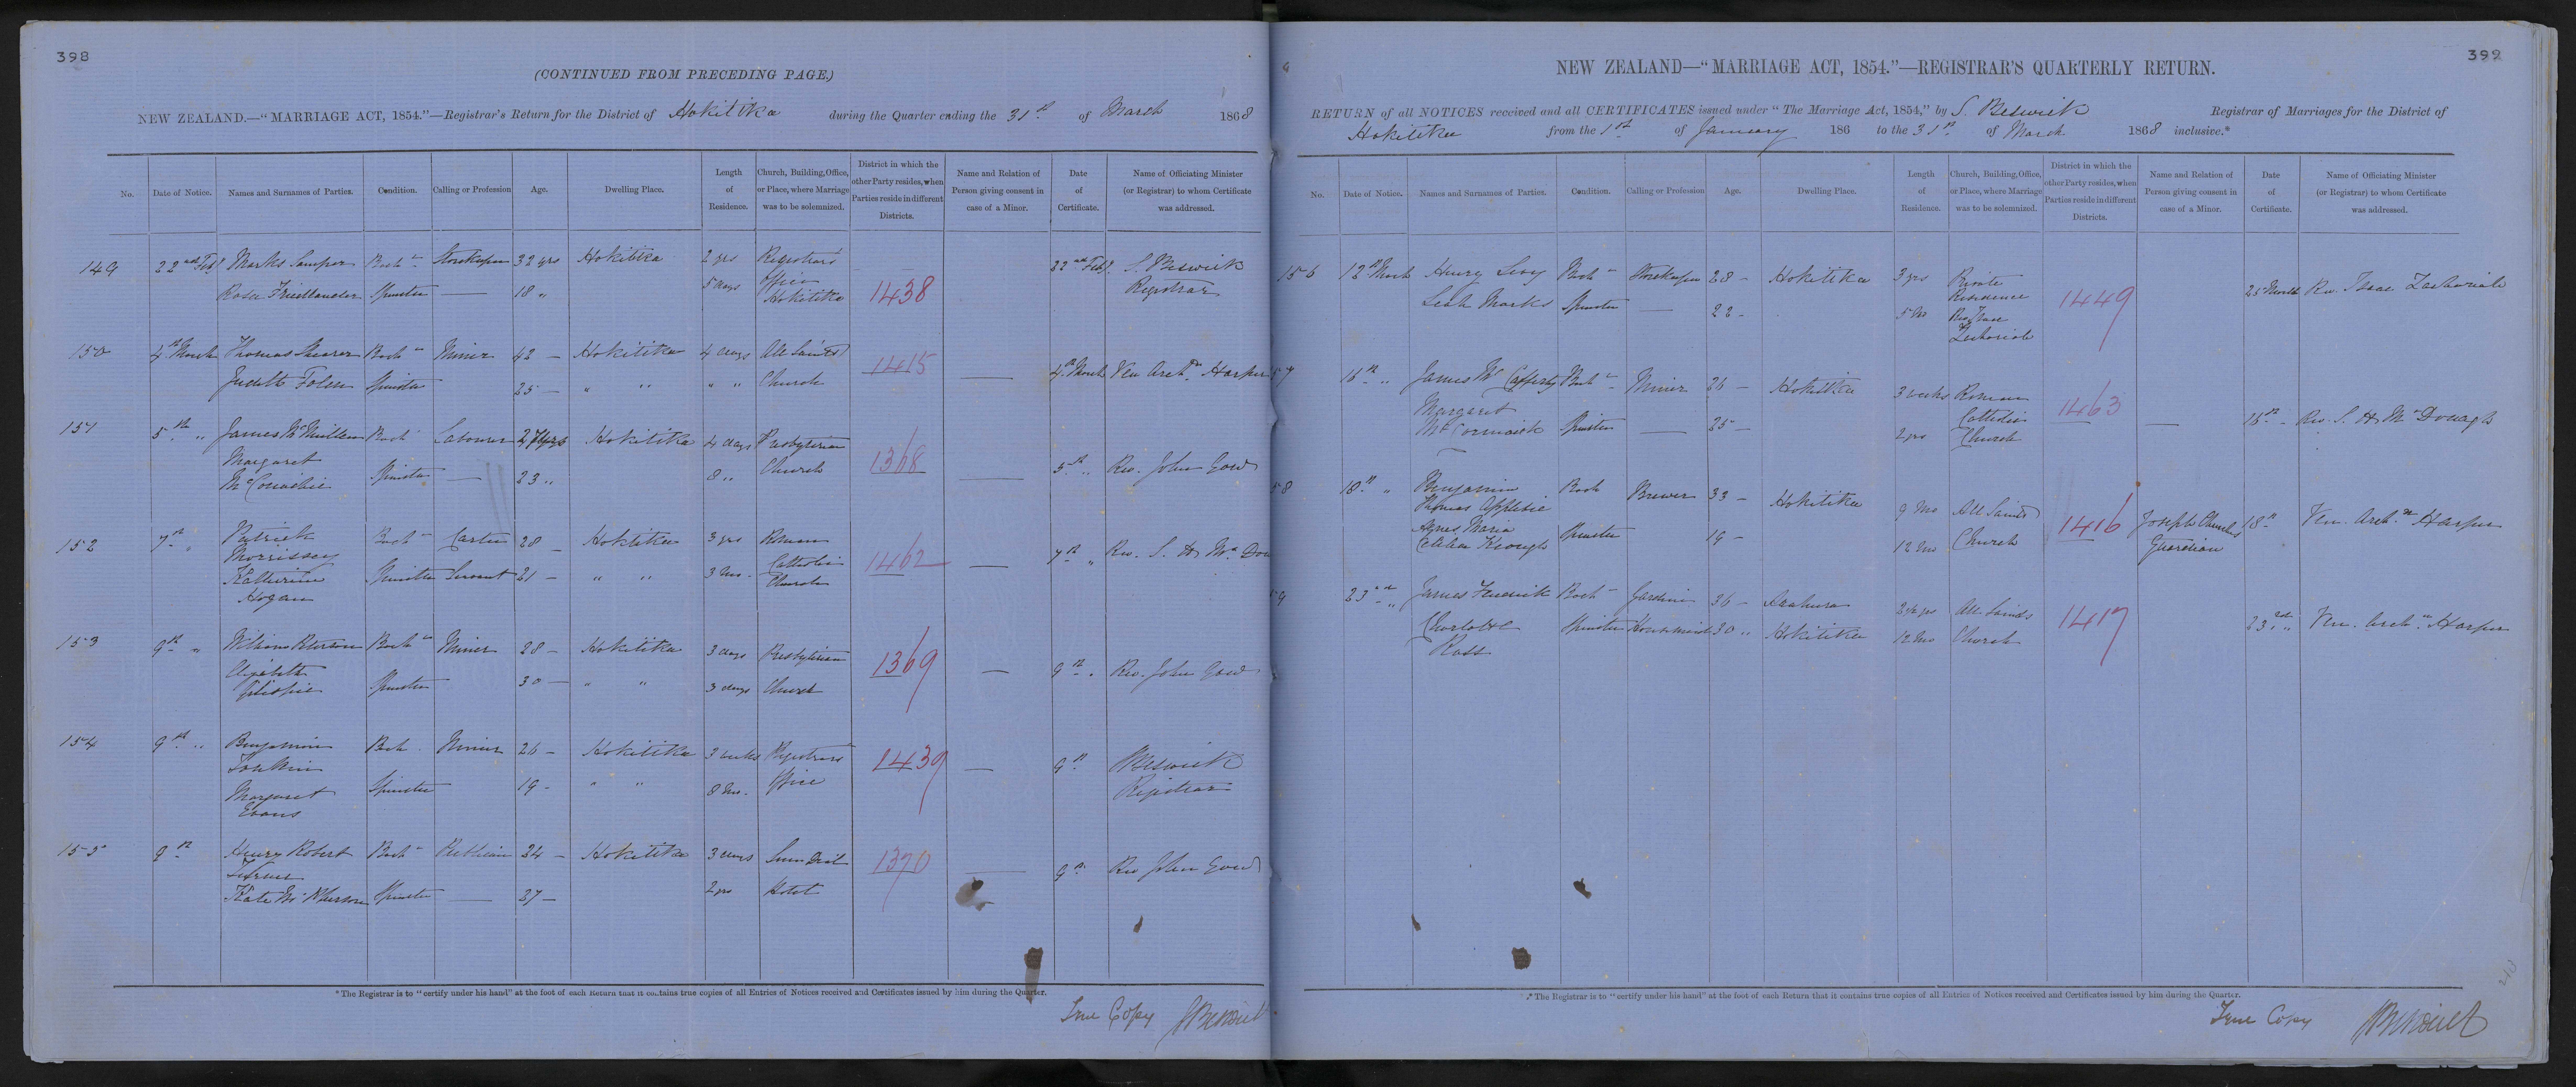 398
(CONTINUED FROM PRECEDING PAGE.)
NEW ZEALAND.—"MARRIAGE ACT, 1854."—Registrar's Return for the District of Hokitika during the Quarter ending the 31st of March 1868
No. Date of Notice. Names and Surnames of Parties. Condition. Calling or Profession Age. Dwelling Place. Length of Residence. Church, Building, Office, or Place, where Marriage was to be solemnized. District in which the other Party resides, when Parties reside in different Districts. Name and Relation of Person giving consent in case of a Minor. Date of Certificate. Name of Officiating Minister (or Registrar) to whom Certificate was addressed.
149 22nd Feby Marks Bachr Storekeeper 32 yrs Hokitika 2 yrs Registrars 22nd Feby S. Beswick
Rosa Friedlander Spinster — 18 " 5 days Office Hokitika 1438 Registrar
150 4th March Thomas Shearer Bachr Miner 42 — Hokitika 4 days All Saints 1415 — 4th March Ven Archdn Harper
Judith Spinster 25 — " " " " Church
151 5th " James McMillan Bach Labourer 27 yrs Hokitika 4 days Presbyterian
Margaret McConachie Spinster — 23 " 8 " Church 1368 — 5th " Rev. John Gow
152 7th " Patrick Morrissey Bachr Carter 28 — Hokitika 3 yrs Roman 1462 — 7th " Rev. S. H Mc Don
Katherine Hogan Spinster Servant 21 — " " 3 Mo. Catholic Church
153 9th " William Peterson Bachr Miner 28 — Hokitika 3 days Presbyterian 1369 — 9th " Rev. John Gow
Elizabeth Gillespie Spinster 30 — " " 3 days Church
154 9th " Benjamin Bach. Miner 26 — Hokitika 3 weeks Registrars 1439 — 9th Beswick
Margaret Evans Spinster 19 - " " 8 Mo. Office Registrar
155 9th Henry Robert Turner Bachr 24 — Hokitika 3 days 1370 — 9th Rev John Gow
Kate McPherson Spinster — 27 — 2 yrs Hotel
*The Registrar is to "certify under his hand" at the foot of each Return that it contains true copies of all Entries of Notices received and Certificates issued by him during the Quarter.
True Copy SBeswick
399
NEW ZEALAND—"MARRIAGE ACT, 1854."—REGISTRAR'S QUARTERLY RETURN.
RETURN of all NOTICES received and all CERTIFICATES issued under "The Marriage Act, 1854," by S. Beswick Registrar of Marriages for the District of
Hokitika from the 1st of January 186 to the 31st of March 1868 inclusive.*
No. Date of Notice. Names and Surnames of Parties. Condition. Calling or Profession Age. Dwelling Place. Length of Residence. Church, Building, Office, or Place, where Marriage was to be solemnized. District in which the other Party resides, when Parties reside in different Districts. Name and Relation of Person giving consent in case of a Minor. Date of Certificate. Name of Officiating Minister (or Registrar) to whom Certificate was addressed.
156 12th March Henry Levy Bachr Storekeeper 28 — Hokitika 3 yrs Private Residence 1449 25 March Rev. Isaac Zachariah
Leah Marks Spinster — 22 - 5 Mo Rev Isaac Zachariah
57 16th " James McCafferty Bachr Miner 26 — Hokitika 3 weeks Roman 1463 — 16th - Rev. S. H McDonagh
Margaret McCormick Spinster — 25 — 2 yrs Catholic Church
58 18th " Benjamin Thomas Bach Brewer 33 — Hokitika 9 Mo All Saints 1416 Joseph Churches 18th Ven. Archdn Harper
Agnes Maria Keough Spinster 19 — 12 Mo Church Guardian
59 23rd " James Frederick Bachr Gardiner 36 — Arahura 2½ yrs All Saints 1417 23rd " Ven. Archdn Harper
Charlotte Ross Spinster Housemaid 30 " Hokitika 12 Mo Church
*The Registrar is to "certify under his hand" at the foot of each Return that it contains true copies of all Entries of Notices received and Certificates issued by him during the Quarter.
True Copy SBeswick